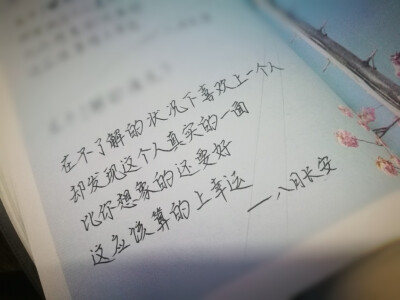 在不了解的状况下喜欢上一个人
却发现这个人真实的一面
比你想象的还要好
这应该算的上幸运
——八月长安